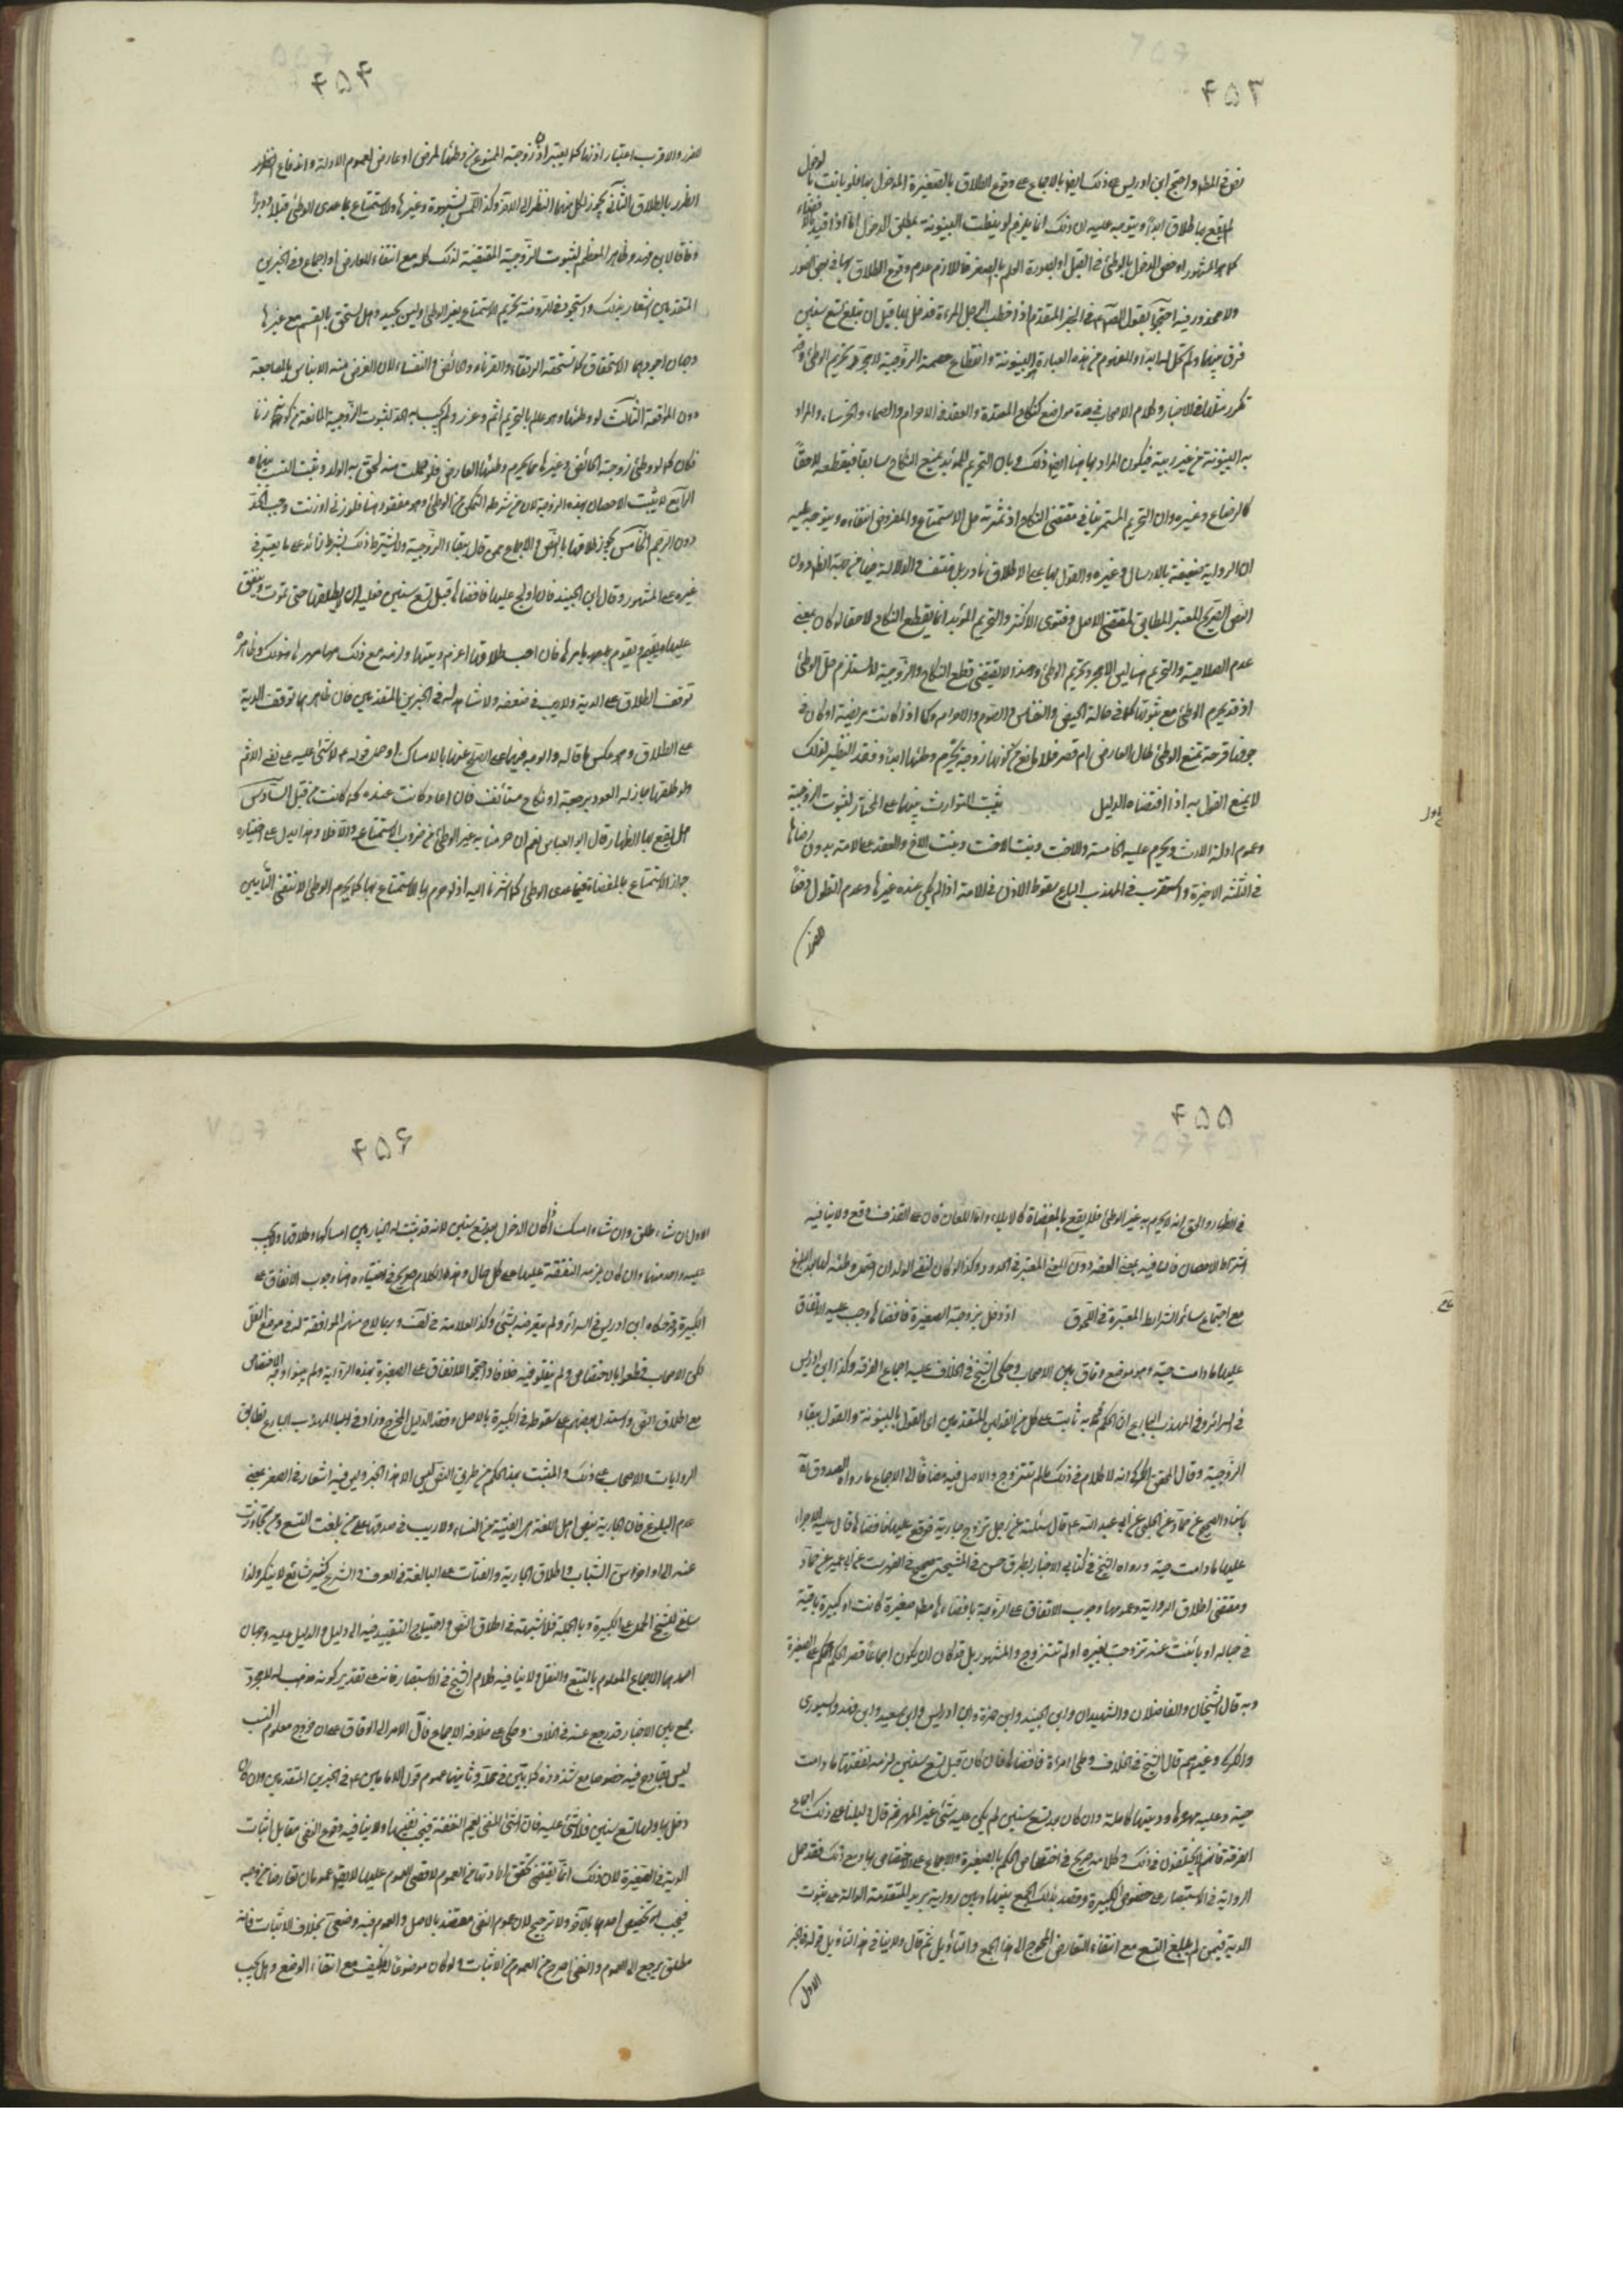 ۴۵۳
لوخل
نص في المطلوب واحتج ابن ادريس على ذلك ايضا بالاجماع على وقوع الطلاق بالصغيرة المدخول بها فلو بانت
لم يقع بها طلاق ابدا ويتوجه عليه ان ذلك انما يلزم لو نيطت البينونة بمطلق الدخول اما اذا قيد بالافضاء
كما هو المشهور او خص الدخول بالوطئ في القبل فاللازم عدم وقوع الطلاق بها في بعض الصور
ولا محذور فيه احتجوا بقوله في الخبر المتقدم اذا خطب الرجل المرءة فدخل بها قبل ان تبلغ تسع سنين
فرق بينهما ولم تحل له ابدا والمفهوم من هذه العبارة البينونة وانقطاع عصمة الزوجية لا مجرد تحريم الوطئ وقد
تكرر مثلها في الاخبار وكلام الاصحاب في عدة مواضع كنكاح المعتدة والعقد في الاحرام والصماء والخرساء والمراد
به البينونة من غير ريبة فيكون المراد بها هنا ايضا ذلك وبان التحريم المؤبد يمنع النكاح سابقا فيقطعه لاحقا
كالرضاع وغيره وان التحريم المستمر ينافي مقتضى النكاح اذ ثمرته حل الاستمتاع والمفروض انتفاءه ويتوجه عليه
ان الرواية ضعيفة بالارسال وغيره والقول بها على الاطلاق نادر بل منتف والدلالة فيها من جهة الظهور دون
النص الصريح المعتبر المطابق لمقتضى الاصل وفتوى الاكثر والتحريم المؤبد انما يقطع النكاح لاحقا لو كان بمعنى
عدم الصلاحية والتحريم هنا ليس الا مجرد تحريم الوطئ وهذا لا يقتضي قطع النكاح والزوجية لا تستلزم حل الوطئ
اذ قد يحرم الوطئ مع ثبوتها كما في حالة الحيض والنفاس والصوم والاحرام وكما اذا كانت مريضة او كان في
جوفها قرحة تمنع الوطئ طال العارض ام قصر فلا مانع من كونها زوجة يحرم وطئها ابدا وفقد النظير لذلك
لا يمنع القول به اذا اقتضاه الدليل يثبت التوارث بينهما على المختار لثبوت الزوجية
وعموم ادلة الارث ويحرم عليه الخامسة والاخت وبنت الاخت وبنت الاخ والعقد على الامة بدون رضاها
في الثلثة الاخيرة واستقرب في المهذب البارع سقوط الاذن في الامة اذا لم يكن عنده غيرها وعدم الطول دفعا
للضرر
۴۵۴
للضرر والاقرب اعتبار اذنها كما يعتبر اذن زوجته الممنوع من وطئها لمرض او عارض لعموم الادلة واندفاع
الضرر بالطلاق الثاني يجوز لكل منهما النظر الى الاخر وكذا اللمس بشهوة وغيرها والاستمتاع بما عدى الوطئ قبلا ودبرا
وفاقا لابن فهد وظاهر المعظم لثبوت الزوجية المقتضية لذلك كله مع انتفاء المعارض اذ لا اجماع وفي الخبرين
المتقدمين اشعار بذلك واستجود في الروضة تحريم الاستمتاع بغير الوطئ وليس بجيد وهل تستحق بالقسم مع غيرها
وجهان اجودهما الاستحقاق كما تستحقه الرتقاء والقرناء والحائض والنفساء لان الغرض منه الايناس بالمضاجعة
دون المواقعة الثالث لو وطئها وهو عالم بالتحريم اثم وعزر ولم يجب به الحد لثبوت الزوجية المانعة من كونه زنا
فكان كما لو وطئ زوجته الحائض وغيرها مما يحرم وطئها العارض فلو حملت منه لحق به الولد وثبت النسب بينهما
الرابع لا يثبت الاحصان بهذه الزوجة لان من شرطه التمكن من الوطئ وهو مفقود هنا فلو زنى او زنت وجب الحد
دون الرجم الخامس يجوز طلاقها بالنص والاجماع ممن قال ببقاء الزوجية ولا يشترط ذلك بشرط زائد على ما يعتبر في
غيره على المشهور وقال ابن الجنيد فان اولج عليها فافضاها قبل تسع سنين فعليه ان لا يطلقها حتى تموت وينفق
عليها ويقيم ويقوم بامرها فان احب طلاقها اغرم ديتها ولزمه مع ذلك مهرها وذلك
توقف الطلاق على الدية ولا ريب في ضعفه ولا شاهد له في الخبرين المتقدمين فان ظاهرهما توقف الدية
على الطلاق وهو عكس ما قاله والوجه فيهما على الصلح عنها بالامساك او حمل قوله لا شئ عليه على نفي الاثم
ولو طلقها جاز له العود برجعة او نكاح مستأنف فان عادت كانت عنده كما كانت من قبل السادس
هل يقع بها الظهار قال ابو العباس نعم ان حرمنا به غير الوطئ من ضروب الاستمتاع والا فلا وهذا يدل على اختياره
جواز الاستمتاع بالمفضاة فيما عدى الوطئ كما اشرنا اليه اذ لو حرم بها الاستمتاع بها كما يحرم الوطئ لانتفى التأبين
۴۵۵
في الظهار والحق انه لا يحرم به غير الوطئ فلا يقع بالمفضاة كالايلاء واما اللعان فان على القذف وقع ولا ينافيه
اشتراط الاحصان فانها فيه بمعنى العفة دون المعنى المعتبر في الحدود وكذا لو كان لنفي الولد ان احتمل وطئه لها بعد البلوغ
مع اجتماع سائر الشرايط المعتبرة في اللحوق اذا دخل بزوجته الصغيرة فافضاها وجب عليه الانفاق
عليها ما دامت حية وهو موضع وفاق بين الاصحاب وحكى الشيخ في الخلاف عليه اجماع الفرقة وكذا ابن ادريس
في السرائر وفي المهذب البارع ان الحكم به ثابت على كل من القولين المتقدمين اي القول بالبينونة والقول ببقاء
الزوجية وقال المحقق الكركي انه لا كلام في ذلك ما لم تتزوج والاصل فيه مضافا الى الاجماع ما رواه الصدوق
باسناده الصحيح عن حماد عن الحلبي عن ابي عبد الله قال سئلته عن رجل تزوج جارية فوقع عليها فافضاها قال عليه الاجراء
عليها ما دامت حية ورواه الشيخ في كتابي الاخبار بطريق حسن في المشيخة صحيح في الفهرست عن ابن ابي عمير عن حماد
ومقتضى اطلاق الرواية وعمومها وجوب الانفاق على الزوجة بافضاءها مطلقا صغيرة كانت او كبيرة باقية
في حباله او بائنت عنه تزوجت بغيره او لم تتزوج والمشهور بل قد كان ان يكون اجماعا قصر الحكم على الصغيرة
وبه قال الشيخان والفاضلان والشهيدان وابن الجنيد وابن حمزة وابن ادريس وابن سعيد وابن فهد والسيوري
والكركي وغيرهم قال الشيخ في الخلاف من وطئ امراة فافضاها فان كان قبل تسع سنين لزمه نفقتها ما دامت
حية وعليه مهرها وديتها كاملة وان كان بعد تسع سنين لم يكن عليه شئ غير المهر ثم قال دليلنا على ذلك اجماع
الفرقة فانهم لا يختلفون في ذلك وكلامه صريح في اختصاص الحكم بالصغيرة والاجماع على الاختصاص بها ومع ذلك فقد حمل
الرواية في الاستبصار على خصوص الكبيرة وقصد بذلك الجمع بينها وبين رواية بريد المتقدمة الدالة على ثبوت
الدية فيمن لم يبلغ التسع مع انتفاء التعارض المحوج الى هذا الجمع والتأويل ثم قال ولا ينافي هذا التأويل قوله في الخبر
الاول
۴۵۶
الاول ان شاء طلق وان شاء امسك اذا كان الدخول بعد تسع سنين لانه قد ثبت له الخيار بين امساكها وطلاقها ويجب
عليه واحد منهما وان كان يلزمه النفقة عليها على كل حال وهذا الكلام صريح في اختياره هنا وجوب الانفاق على
الكبيرة وقد حكاه ابن ادريس في السرائر ولم يتعرضه بشئ وكذا العلامة في لف وربما لاح منهم الموافقة له في موضع النقل
لكن الاصحاب قطعوا بالاختصاص ولم ينقلوا فيه خلافا واحتجوا للانفاق على الصغيرة بهذه الرواية ولم يبينوا وجه الاختصاص
مع اطلاق النص واستدل بعضهم على سقوطه في الكبيرة بالاصل وفقد الدليل المخرج وزاد في المهذب البارع تطابق
الروايات والاصحاب على ذلك والمثبت بهذا الحكم من طريق النص ليس الا هذا الخبر وليس فيه اشعار في الصغر بمعنى
عدم البلوغ فان الجارية بنص اهل اللغة هي الفتية من النساء ولا ريب في صدقها على من بلغت التسع ومن تجاوزت
عنه الى اواخر سن الشباب واطلاق الجارية والفتاة على البالغة في العرف والشرع كثير شائع لا ينكر ولذا
ساغ للشيخ الحمل على الكبيرة وبالجملة فلا شبهة في اطلاق النص واحتياج التقييد فيه الى دليل والدليل عليه وجهان
احدهما الاجماع المعلوم بالتتبع والنقل ولا ينافيه كلام الشيخ في الاستبصار فانه على تقدير كونه مذهبا له لا مجرد
جمع بين الاخبار قد رجع عنه في الخلاف وحكى على خلافه الاجماع فآل الامر الى الوفاق على ان خروج معلوم النسب
ليس بقادح فيه خصوصا مع شذوذه كما بين في محله وثانيهما عموم قول الامامين في الخبرين المتقدمين وان كان
دخل بها ولها تسع سنين فلا شئ عليه فان الشئ المنفي يعم النفقة فيجب نفيها ولا ينافيه وقوع النفي مقابل اثبات
الدية في الصغيرة لان ذلك انما يقتضي تحقق ارادتها من العموم لا قصر العموم عليها لا يقال عمومان تعارضا من وجه
فيجب تخصيص احدهما بالاخر ولا ترجيح لان عموم النفي معتضد بالاصل والعموم فيه وضعي بخلاف الاثبات فانه
مطلق يرجع الى العموم والنفي اصرح في العموم من الاثبات ولو كان موضوعا فكيف مع انتفاء الوضع وهل يجب